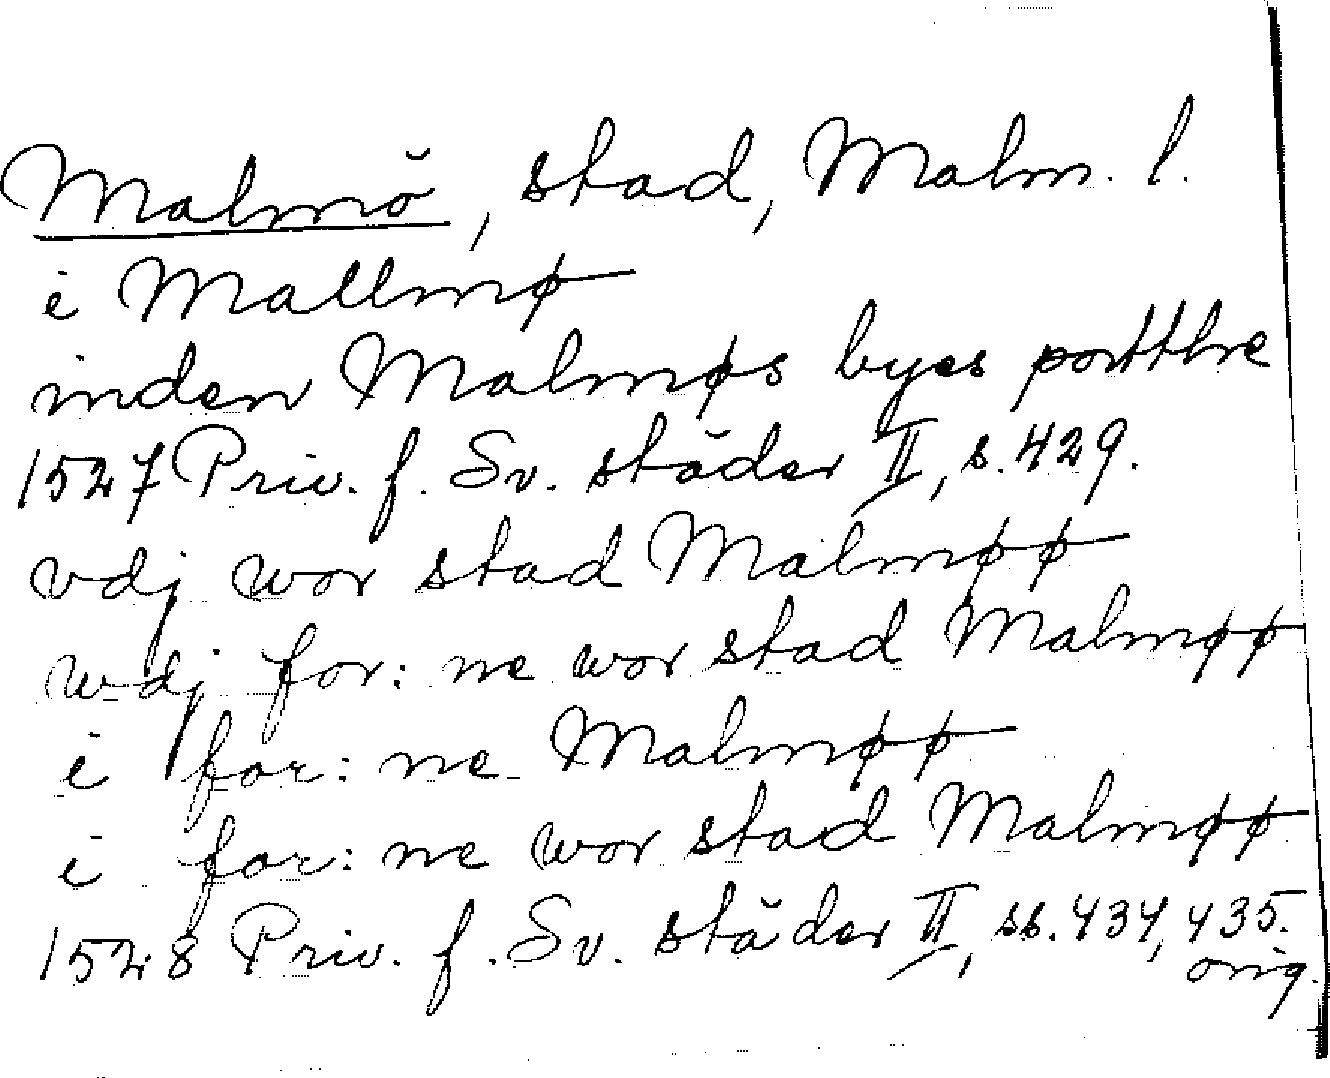 Malmö, stad, Malm. l.
i Mallmø
inden Malmøs byes portthre
1527 Priv. f. Sv. städer II, s. 429.
vdj wor stad Malmøø
wdj for: ne wor stad Malmøø
i for: ne Malmøø
i for: ne wor stad Malmøø
1528 Priv. f. Sv. städer II, ss. 434, 435.
orig.